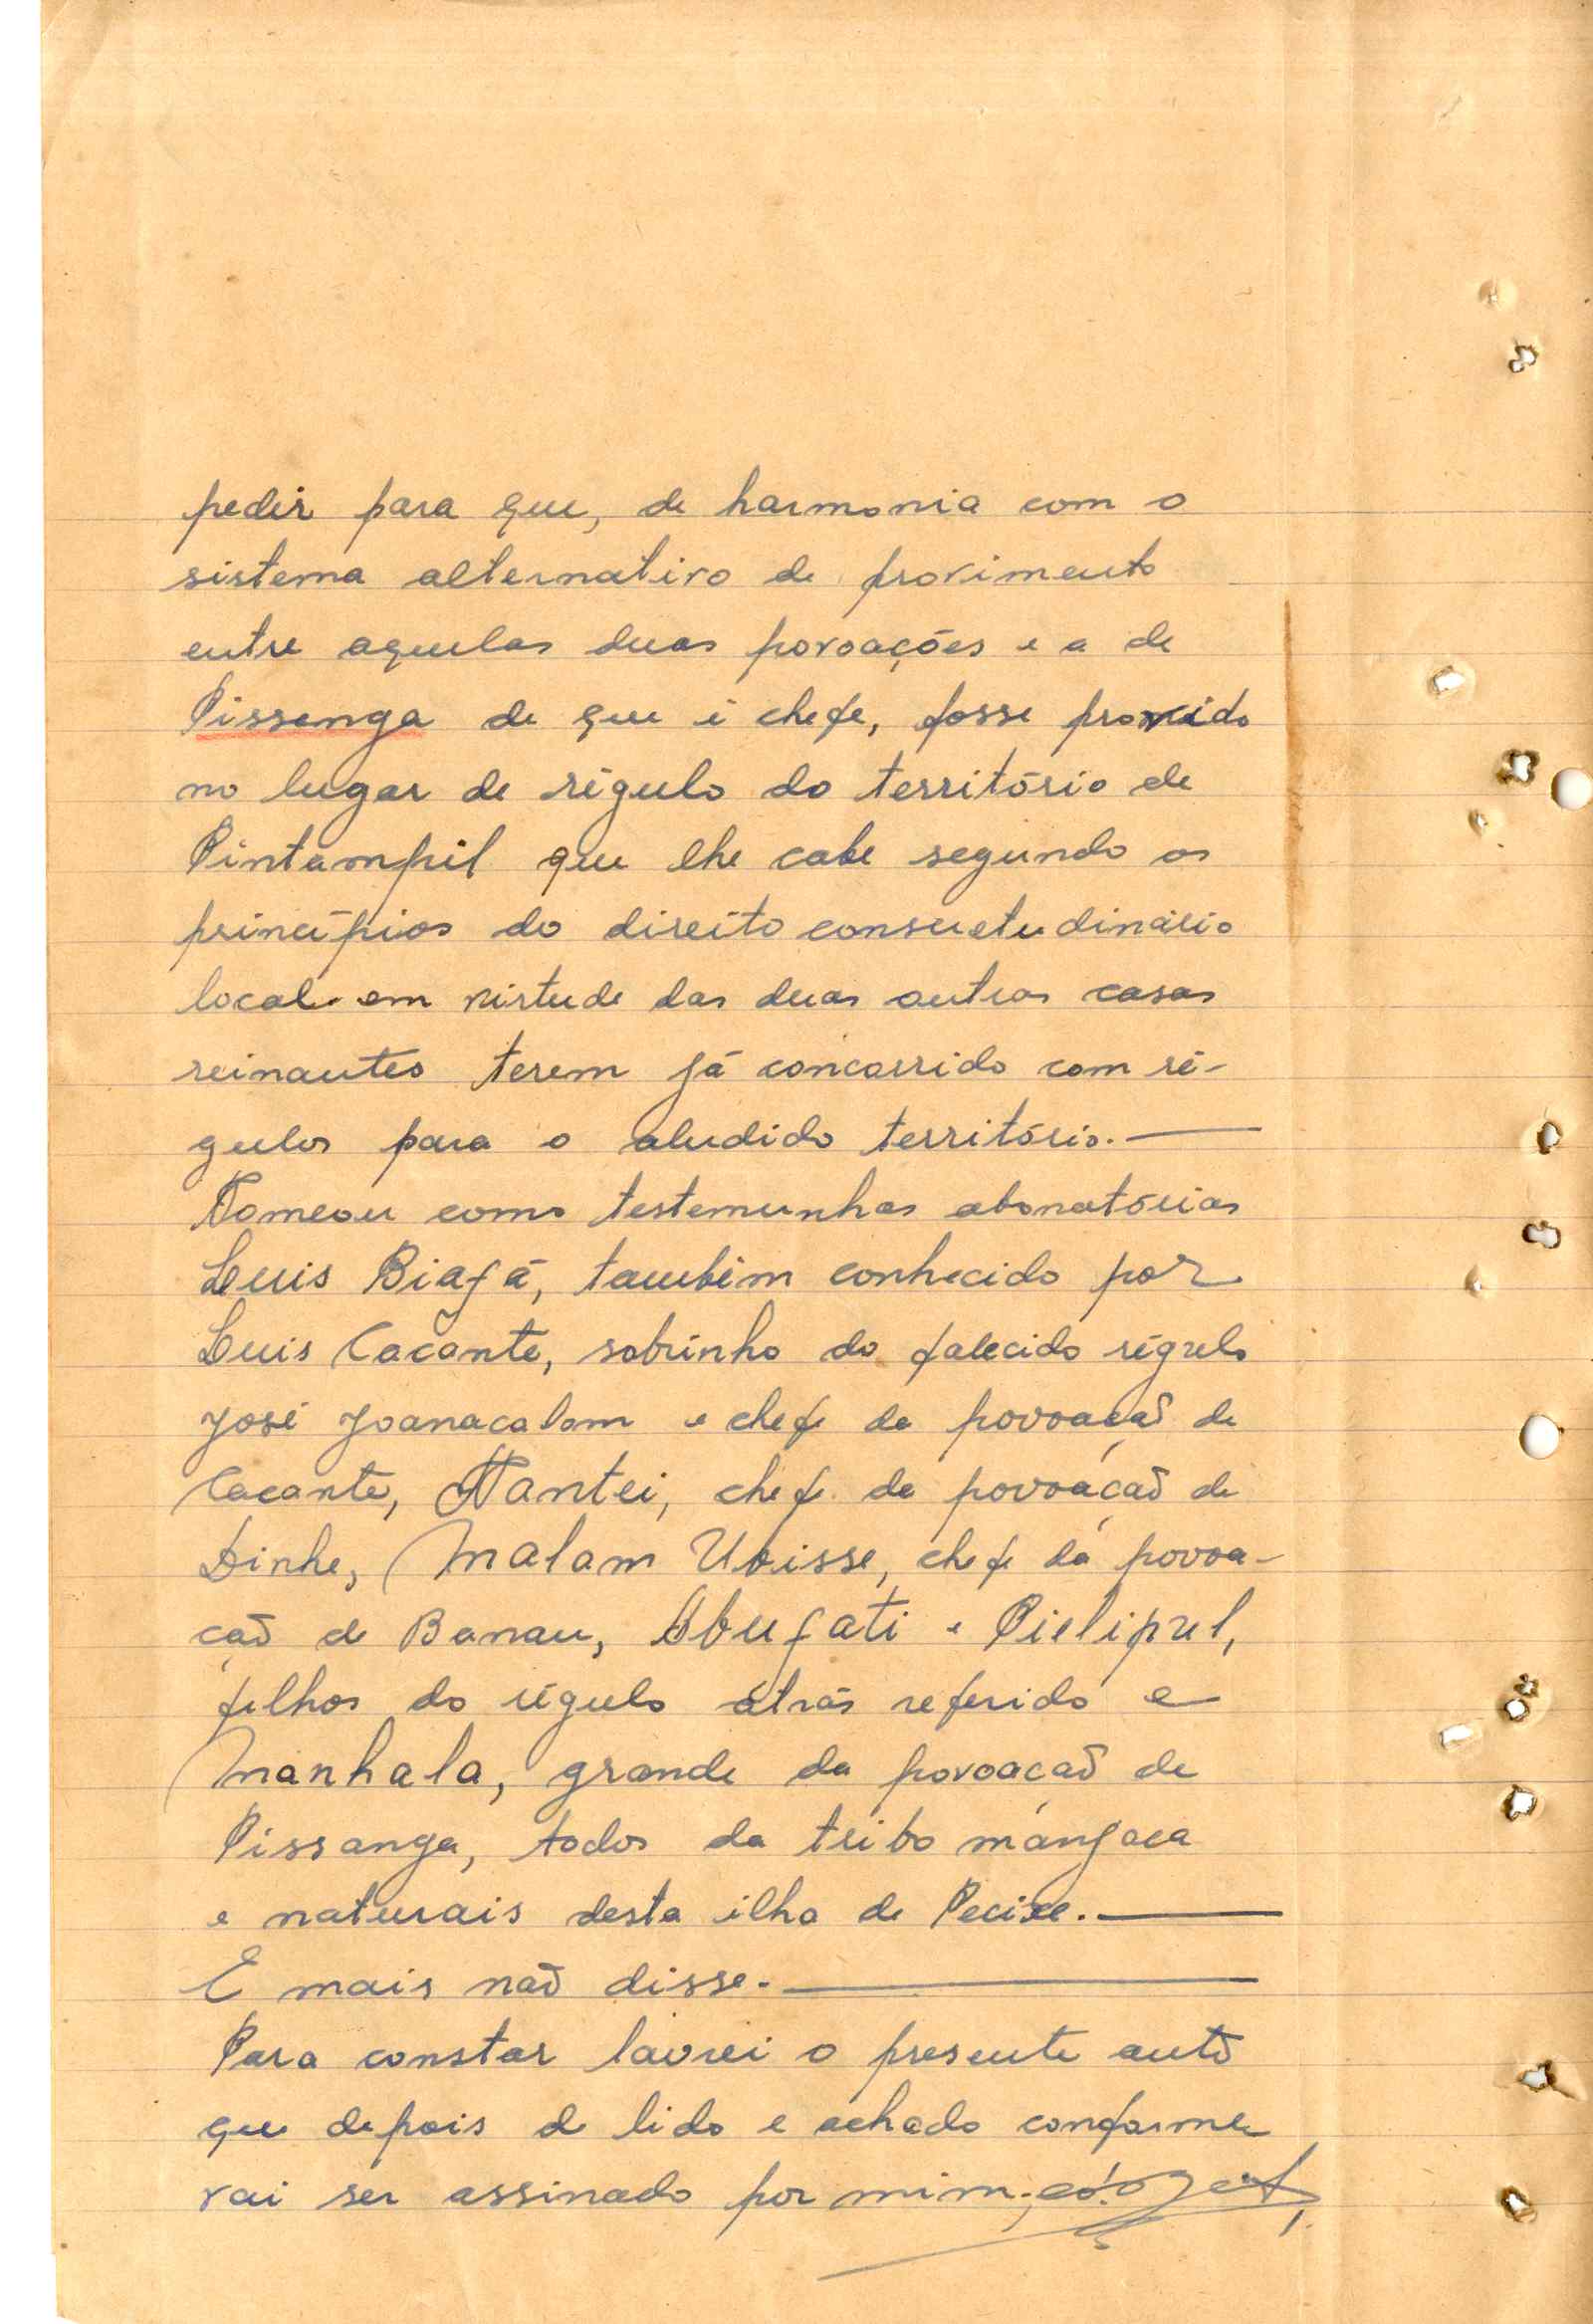 pedir para que, de harmonia com o
sistema alternativo de provimento
entre aquelas duas povoações e a de
Pissenga de que é chefe, fosse provido
no lugar de régulo do território de
Pintampil que lhe cabe segundo os
princípios do direito consuetudinário
local em virtude das duas outras casas
reinantes terem já concorrido com ré-
gulos para o aludido território.
Nomeou como testemunhas abonatórias
Luis Biajá, também conhecido por
Luis Cacante, sobrinho do falecido régulo
José Joanacalom e chefe da povoação de
Cacante, Nantei, chefe da povoação de
Dinhe, Malam Uoisse, chefe da povoa-
ção de Banau, Obujati e Pielipul,
filhos do régulo atrás referido e
Manhala, grande da povoação de
Pissanga, todos da tribo manjaca
e naturais desta ilha de Pecixe.
E mais não disse.
Para constar lavrei o presente auto
que depois de lido e achado conforme
vai ser assinado por mim,